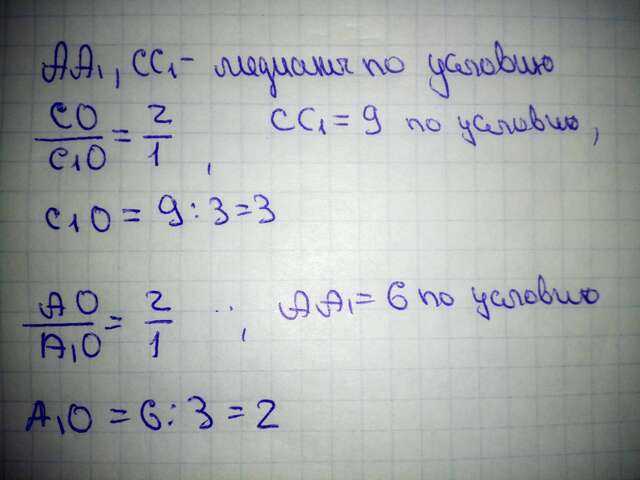 AA₁, CC₁ - медианы по условию
CO/C₁O = 2/1, CC₁ = 9 по условию,
C₁O = 9:3=3
AO/A₁O = 2/1 ∴, AA₁ = 6 по условию
A₁O = 6:3 = 2